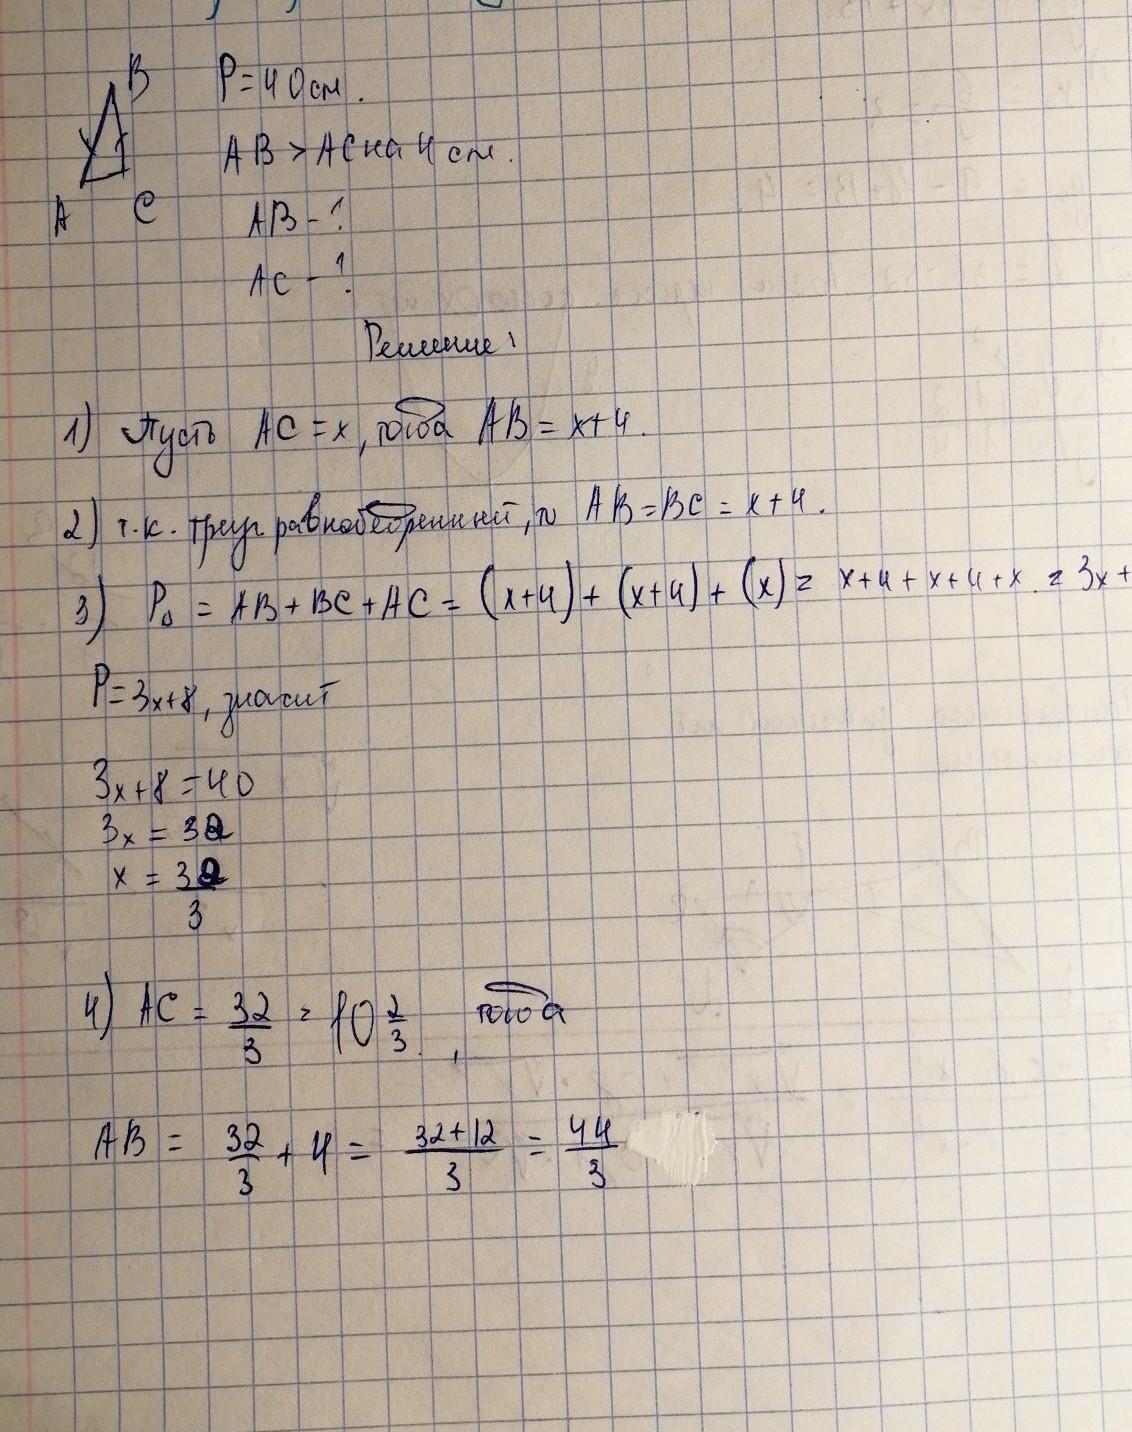 B
P=40см.
AB > AC на 4 см.
A C
AB - ?
AC - ?
Решение:
1) Пусть AC = x, тогда AB = x+4.
2) т.к. треуг. равнобедренный, то AB = BC = x+4.
3) P△ = AB + BC + AC = (x+4) + (x+4) + (x) = x+4+x+4+x = 3x+
P=3x+8, значит
3x+8=40
3x = 32
x = 32/3
4) AC = 32/3 = 10 2/3, тогда
AB = 32/3 + 4 = 32+12/3 = 44/3